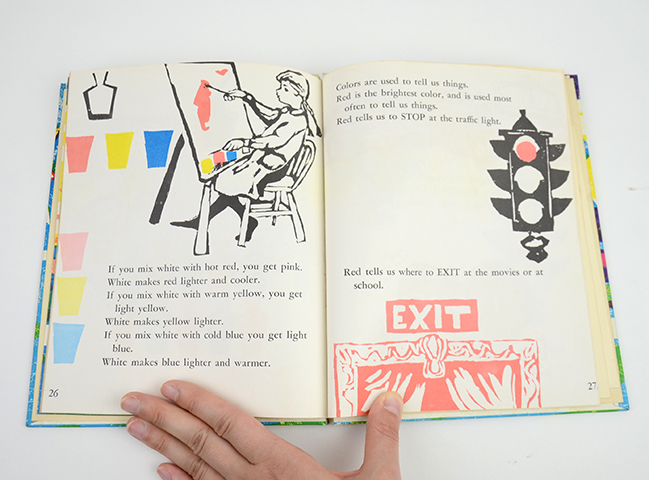 If you mix white with hot red, you get pink.
White makes red lighter and cooler.
If you mix white with warm yellow, you get
light yellow.
White makes yellow lighter.
If you mix white with cold blue you get light
blue.
White makes blue lighter and warmer.
26
Colors are used to tell us things.
Red is the brightest color, and is used most
often to tell us things.
Red tells us to STOP at the traffic light.
Red tells us where to EXIT at the movies or at
school.
EXIT
27